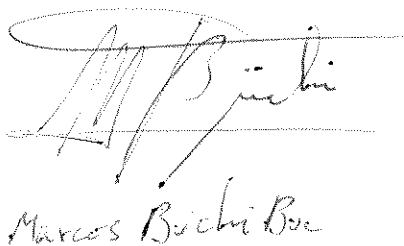 Büchi
Marcos Büchi Buc